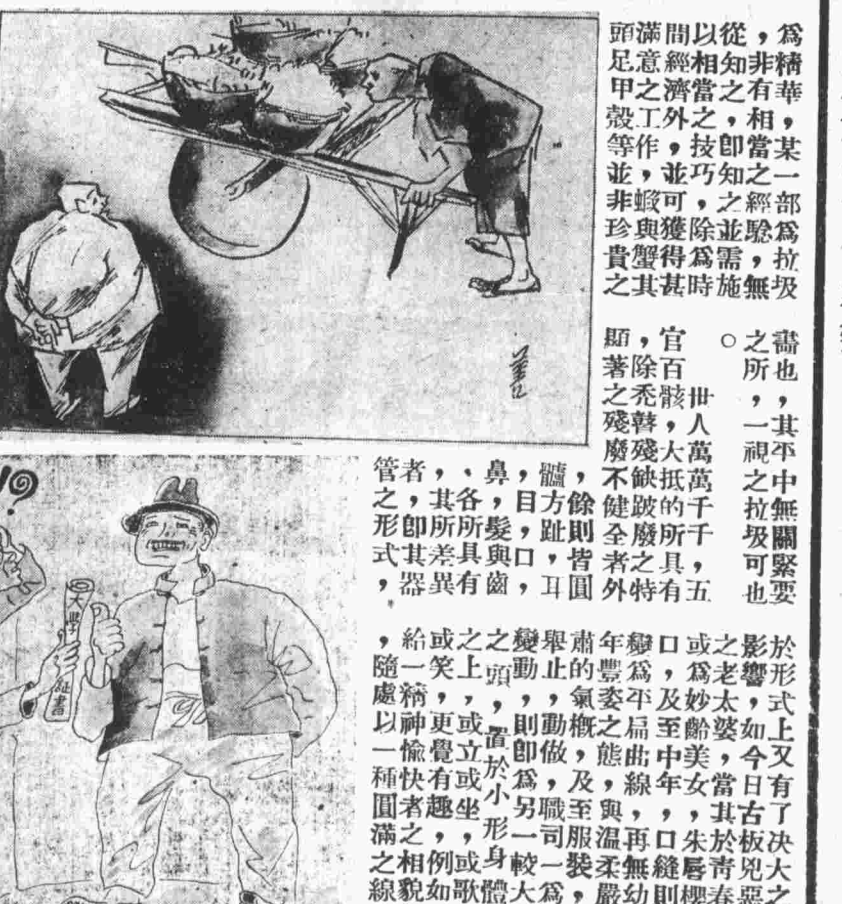 爲精華，某一部爲拉圾
，非有相當之經驗，無
從知之，即知之並需施
以相當之技巧，除爲時
間經濟外，並可獲得甚
滿意之工作，蝦與蟹其
頭足甲殼等並非珍貴之
畵也，其平中無關緊要
之所，一視之拉圾可也
。
世人萬萬千千，五
官百骸，大抵的所具有
，除禿殘缺跛廢之特
顯著之殘廢不健全者外
，餘則皆圓
髗方趾，耳
，目，口，
鼻，髮與齒
、各所具有
，其所差異
者，即其器
管之形式，
於形式上又有了决大之
影響，如今日古板兇惡
之老太婆，當其於青春
或爲妙齡美女，朱唇櫻
口，及至中年，口縫則
變爲平扁曲線，再無幼
年豐姿之態與溫柔嚴
肅的氣概，及至服裝，
舉止，動做，職司一爲
變動，則即爲另一較大
之頭，置於小形身體
之上，或立或坐，或歌
或笑，更覺有趣，例如
給一精神愉快者之相貌
，隨處以一種圓滿之線
大學証書